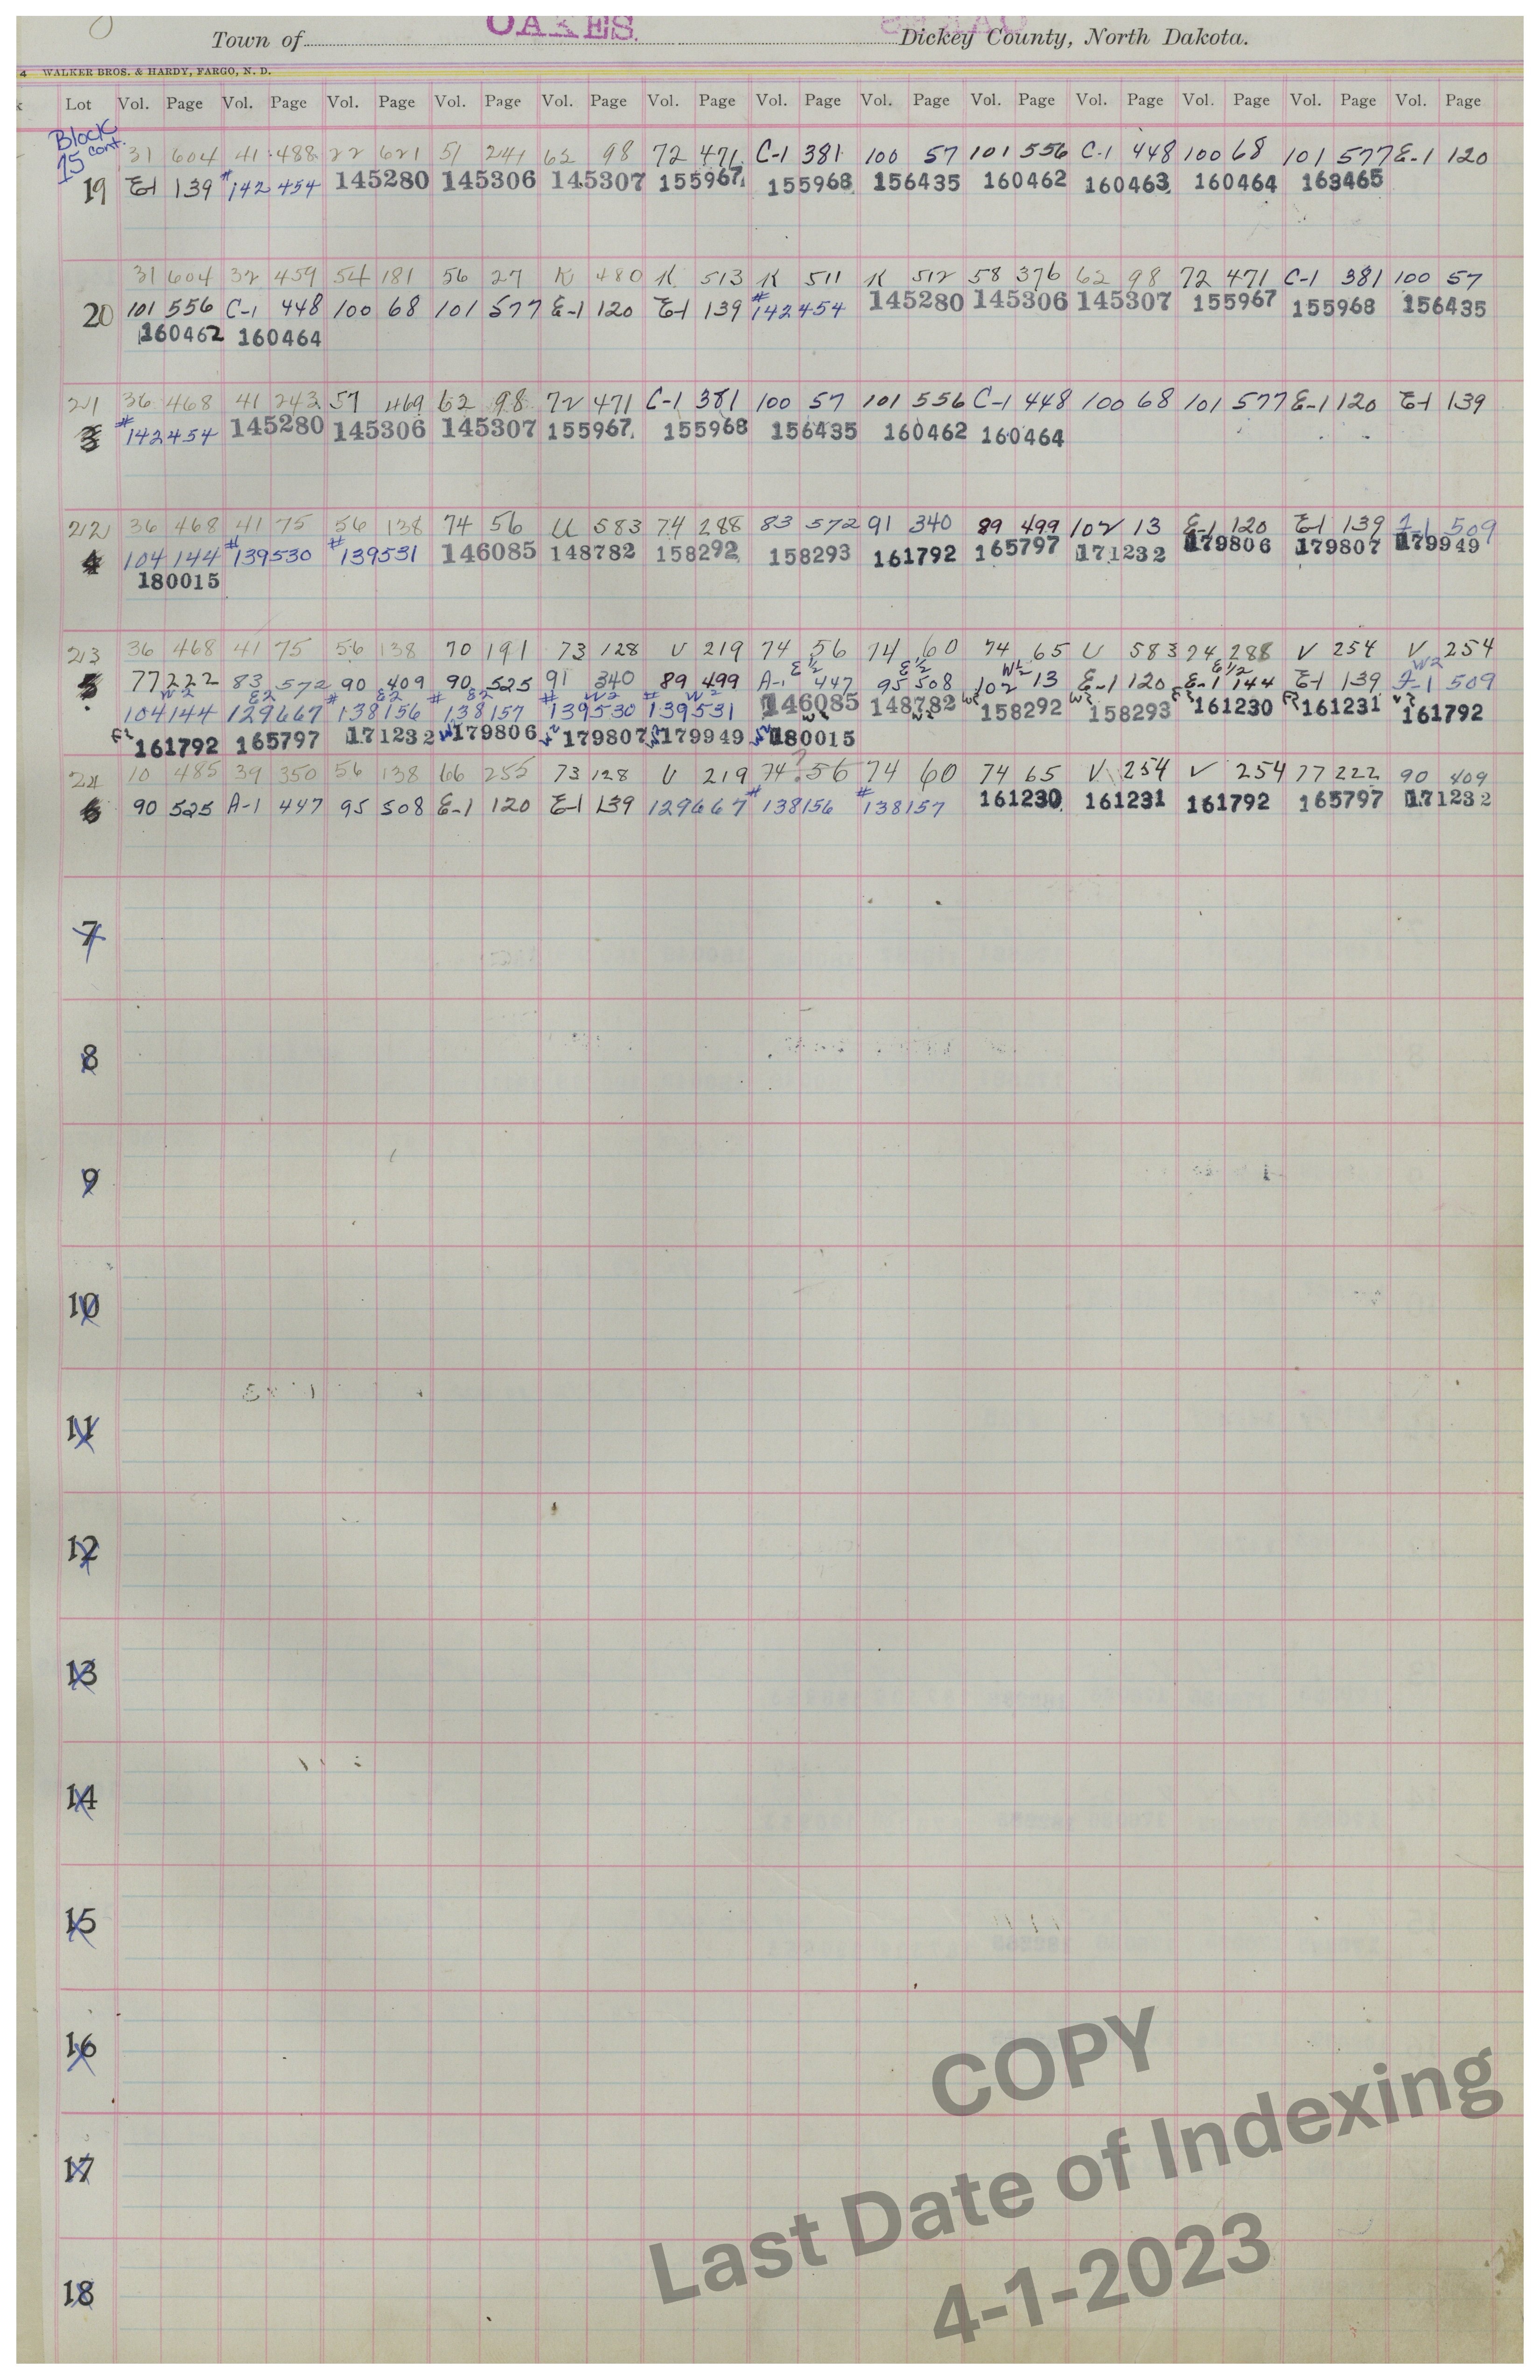 OAKES.
Town of Dickey County, North Dakota.
4 WALKER BROS. & HARDY, FARGO, N. D.
Lot Vol. Page Vol. Page Vol. Page Vol. Page Vol. Page Vol. Page Vol. Page Vol. Page Vol. Page Vol. Page Vol. Page Vol. Page Vol. Page
Block
15 cont.
31 604 41 488 22 621 51 241 62 98 72 471 C-1 381 100 57 101 556 C-1 448 100 68 101 577 E-1 120
19 E-1 139 #142454 145280 145306 145307 155967 155968 156435 160462 160463 160464 163465
31 604 32 459 54 181 56 27 K 480 K 513 K 511 K 512 58 376 62 98 72 471 C-1 381 100 57
20 101 556 C-1 448 100 68 101 577 E-1 120 E-1 139 #142454 145280 145306 145307 155967 155968 156435
160462 160464
21 36 468 41 243 57 469 62 98 72 471 C-1 381 100 57 101 556 C-1 448 100 68 101 577 E-1 120 E-1 139
3 #142454 145280 145306 145307 155967 155968 156435 160462 160464
22 36 468 41 75 56 138 74 56 U 583 74 288 83 572 91 340 89 499 102 13 E-1 120 E-1 139 509
4 104 144 #139530 #139531 146085 148782 158292 158293 161792 165797 171232 179806 179807 179949
180015
23 36 468 41 75 56 138 70 191 73 128 U 219 74 56 74 60 74 65 U 583 74 288 V 254 V 254
E 1/2 E 1/2 W 1/2 E 1/2 W2
5 77 222 83 572 90 409 90 525 91 340 89 499 A-1 447 95 508 102 13 E-1 120 E-1 144 E-1 139 509
W2 E2 E2 E2 W2 W2
104 144 129667 #138156 #138157 #139530 #139531 146085 148782 W2 158292 W2 158293 E2 161230 E2 161231 W2 161792
E2 161792 165797 171232 W2 179806 W2 179807 W2 179949 W2 180015
24 10 485 39 350 56 138 66 255 73 128 U 219 74 ? 56 74 60 74 65 V 254 V 254 77 222 90 409
6 90 525 A-1 447 95 508 E-1 120 E-1 139 129667 #138156 #138157 161230 161231 161792 165797 171232
7
8
9
10
11
12
13
14
15
16
17
18
COPY
Last Date of Indexing
4-1-2023